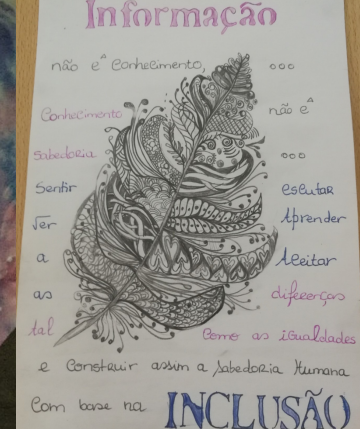 Informação
não e^ Conhecimento, ooo
Conhecimento não e^
Sabedoria ooo
Sentir escutar
Ver Aprender
a Aceitar
as diferenças
tal como as igualdades
e Construir assim a Sabedoria Humana
Com base na INCLUSÃO